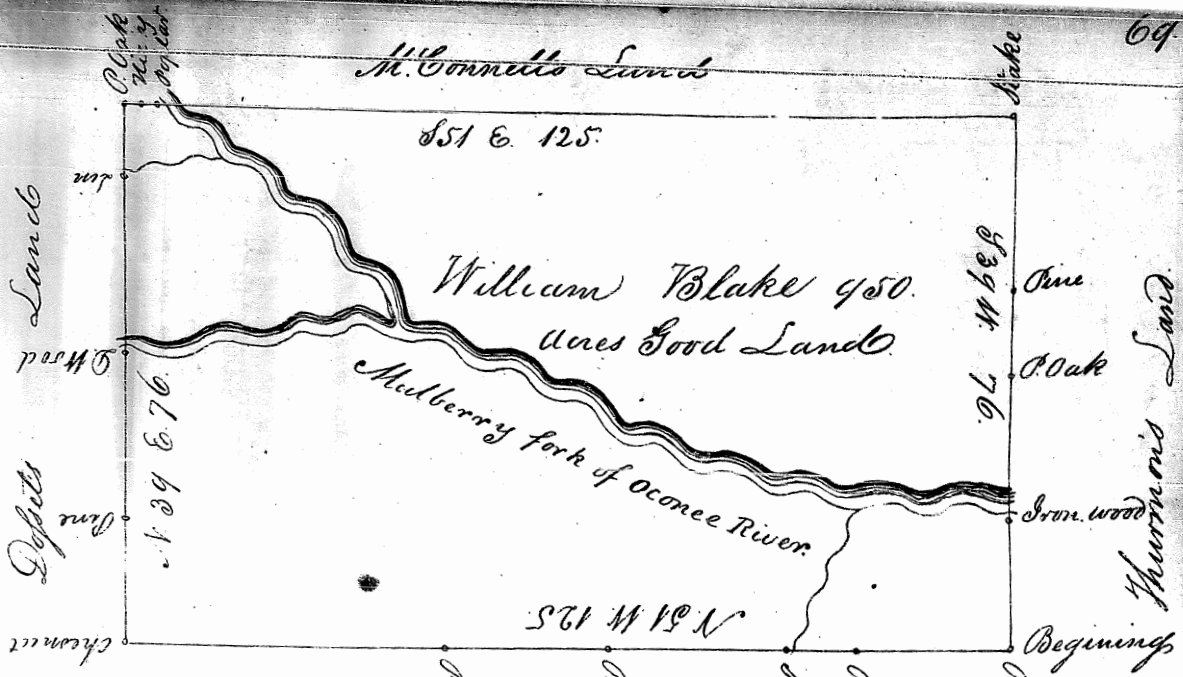 69.
P. Oak
Hicy
Poplar
McConnells Land
Stake
S 51 E. 125.
Lin
Dossets Land
William Blake 950.
acres Good Land
S 39 W. 76.
Pine
P. Oak
Thurmon's Land
D. Wood
N 39 E. 76.
Mulberry fork of Oconee River.
Pine
Iron wood
N 51 W. 125
Chesnut
Beginings